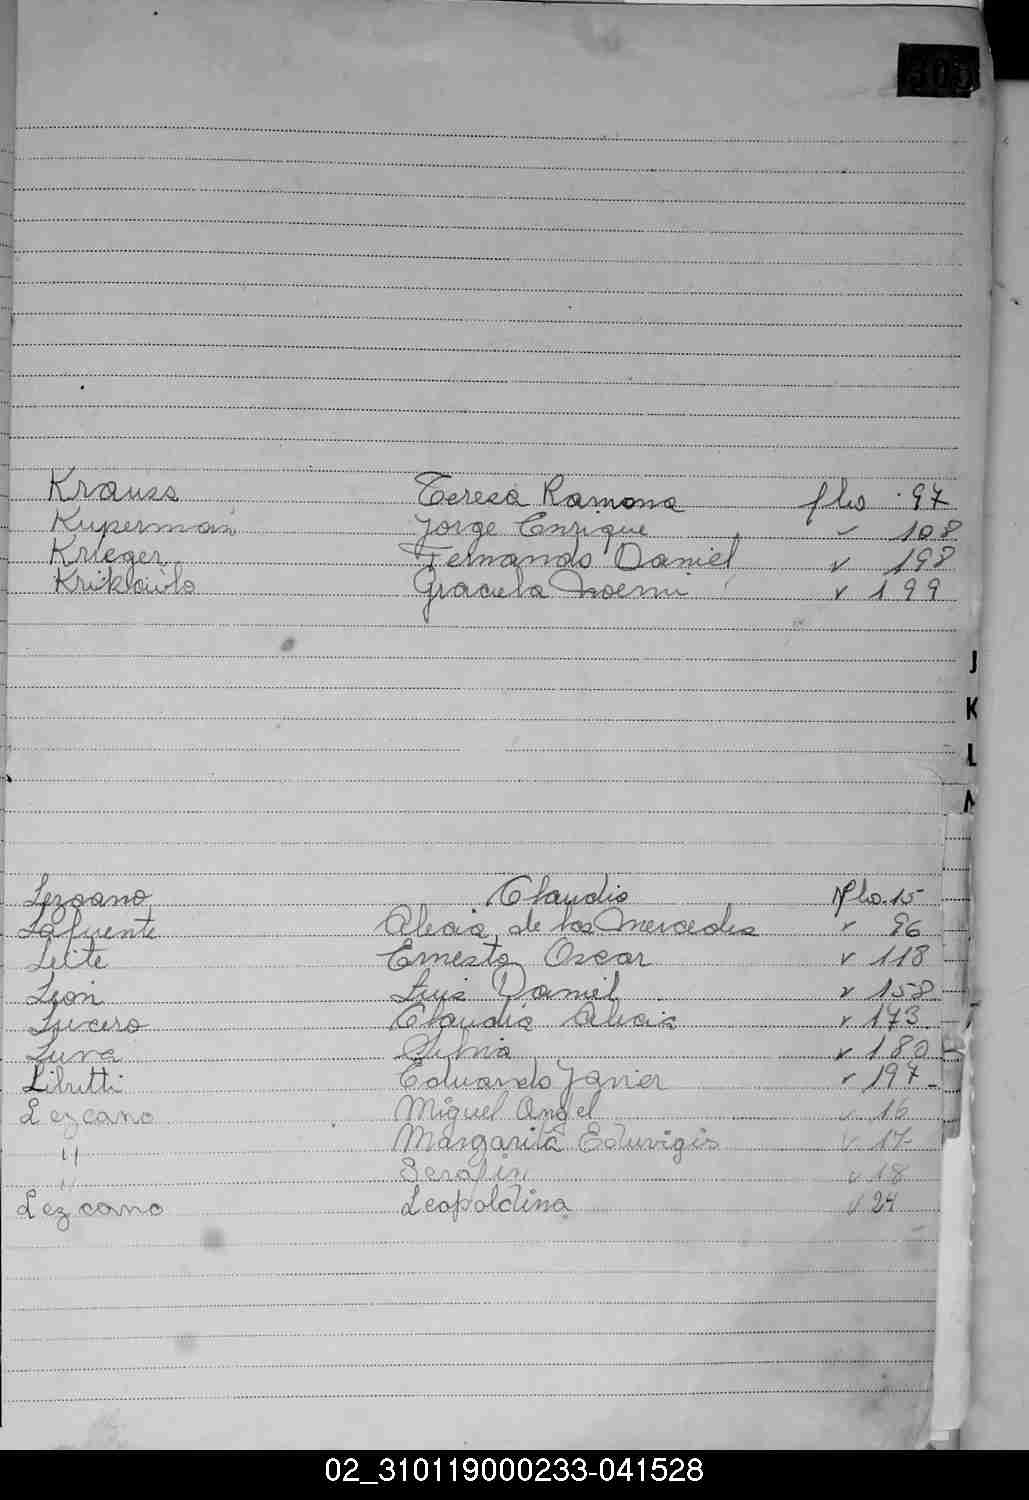 305
Krauss Teresa Ramona flio 97
Kuperman Jorge Enrique " 108
Krieger Fernando Daniel " 198
Graciela Noemi " 199
J
K
L
Lezcano Claudio flio. 15
Lafuente Alicia de las Mercedes " 96
Leite Ernesto Oscar " 118
Leon Luis Daniel " 158
Lucero Claudia Alicia " 173
Luna Silvia " 180
Libutti Eduardo Javier " 197
Lezcano Miguel Angel " 16
" Margarita Eduvigis " 17
" Serafin " 18
Lezcano Leopoldina " 24
02_310119000233-041528